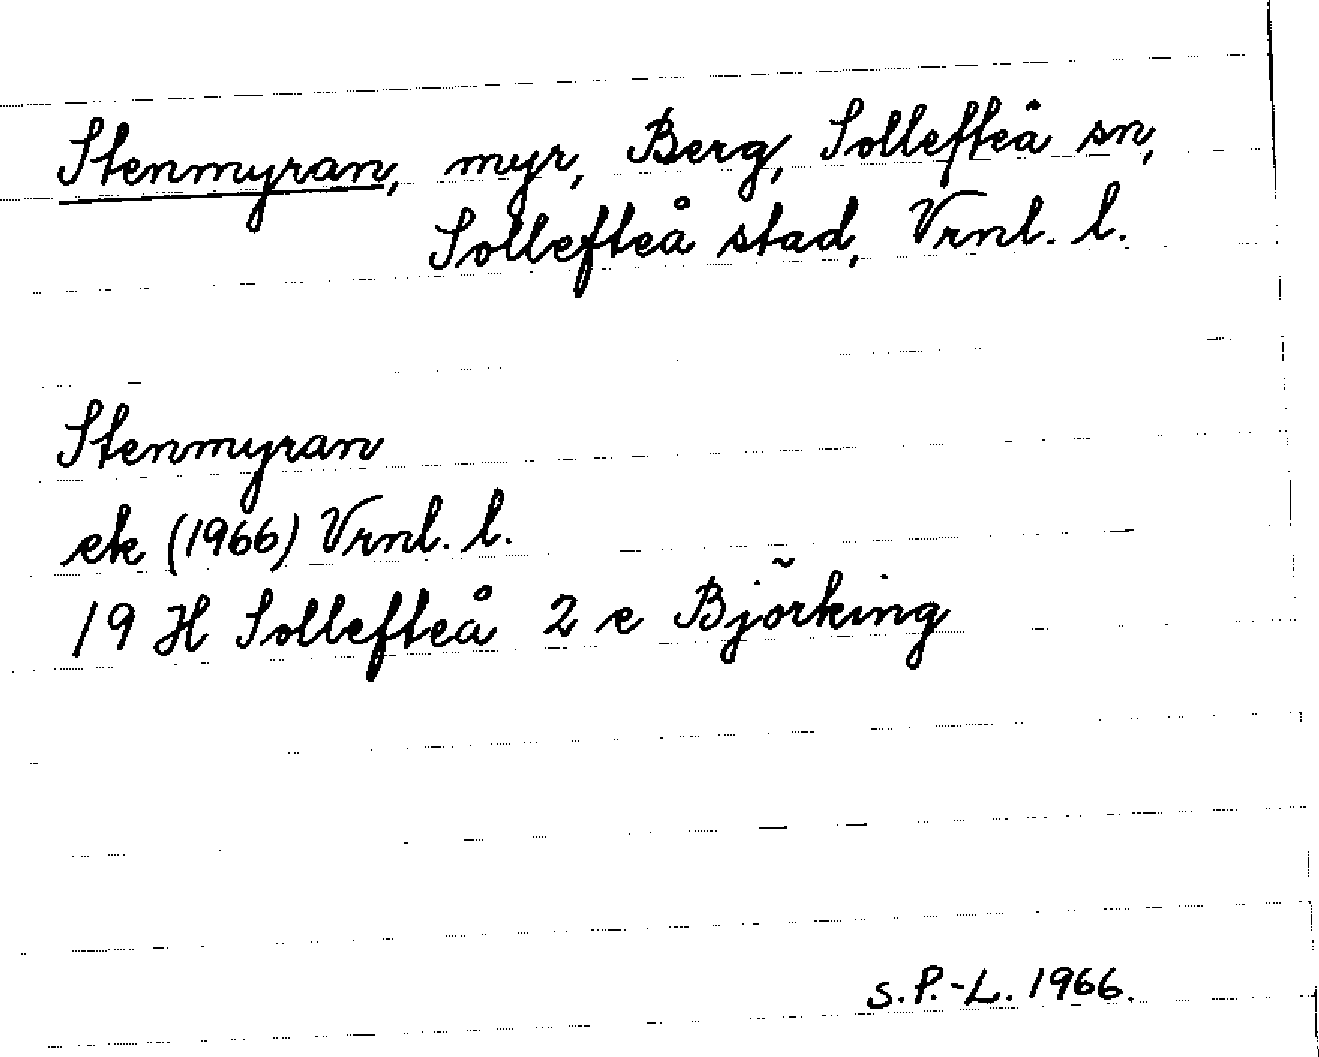 Stenmyran, myr, Berg, Sollefteå sn,
Sollefteå stad, Vrnl. l.
Stenmyran
ek (1966) Vrnl. l.
19 H Sollefteå 2 e Björking
S.P.-L. 1966.